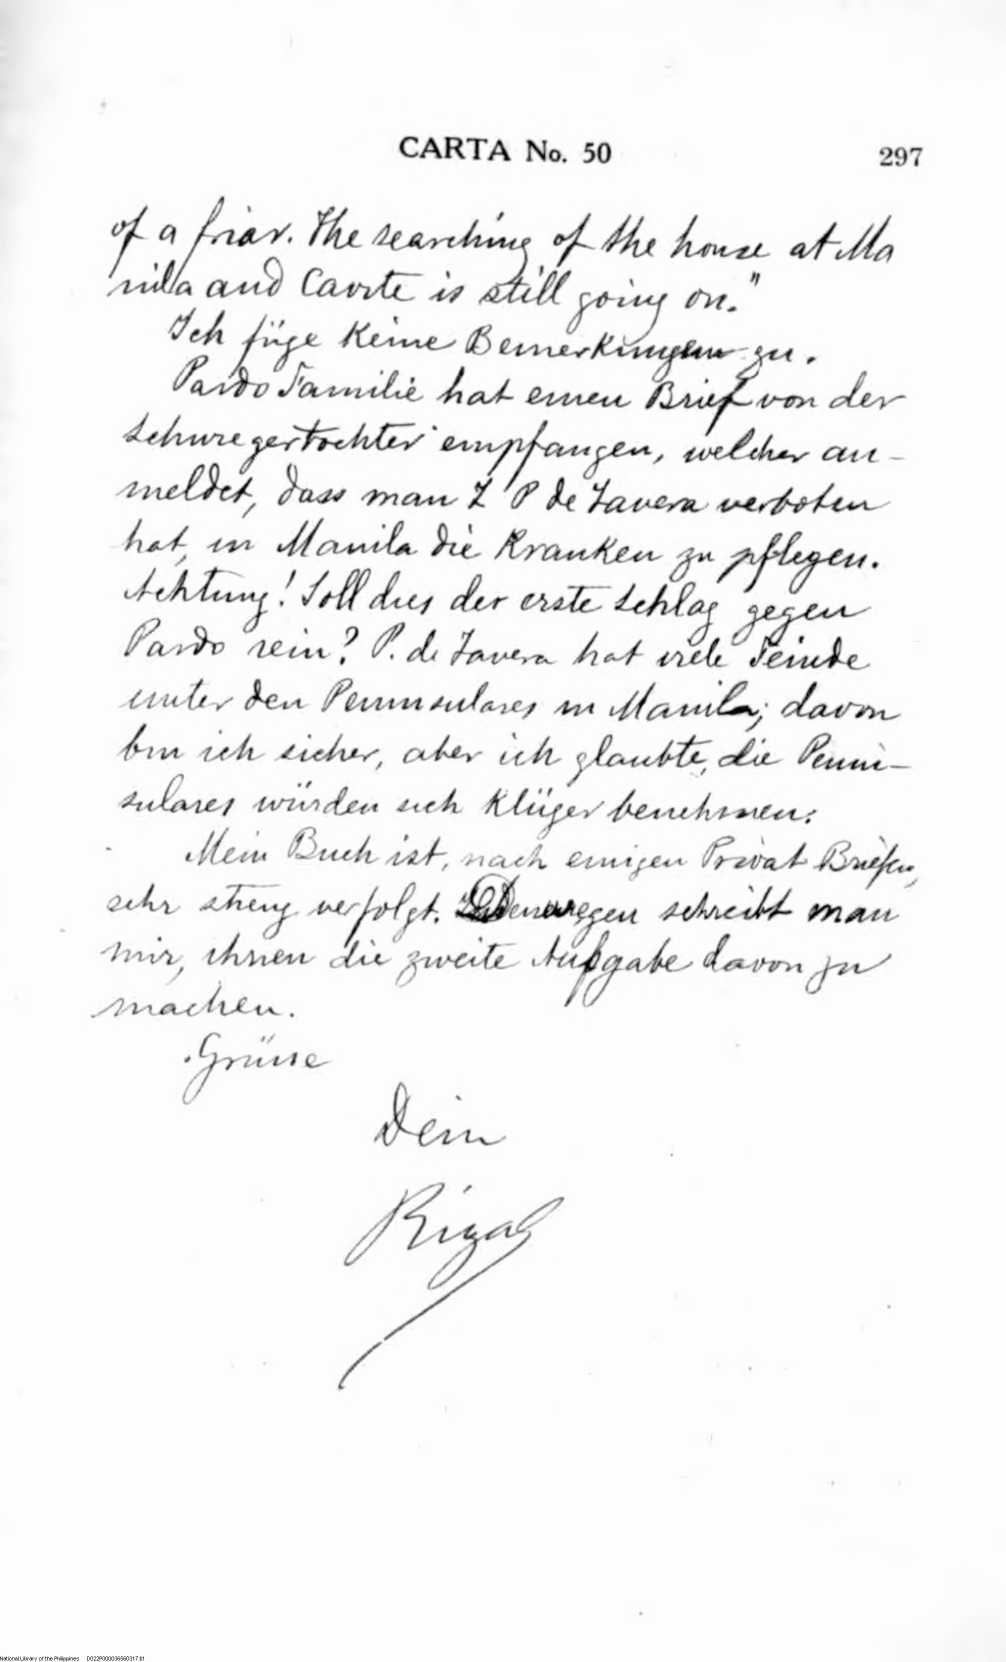 CARTA No. 50
297
of a friar. The searching of the house at Ma
nila and Cavite is still going on."
Ich füge Keine Bemerkungen zu.
Pardo Familie hat einen Brief von der
Schwiegertochter empfangen, welcher an-
meldet, dass man T P de Tavera verboten
hat, in Manila die Kranken zu pflegen.
Achtung! Soll dies der erste Schlag gegen
Pardo sein? P. de Tavera hat viele Feinde
unter den Peninsulares in Manila; davon
bin ich sicher, aber ich glaubte, die Penin-
sulares würden sich Klüger benehmen.
Mein Buch ist, nach einigen Privat Briefen,
sehr streng verfolgt. schreibt man
mir, ihnen die zweite Aufgabe davon zu
machen.
Grüsse
Dein
Rizal
National Library of the Philippines